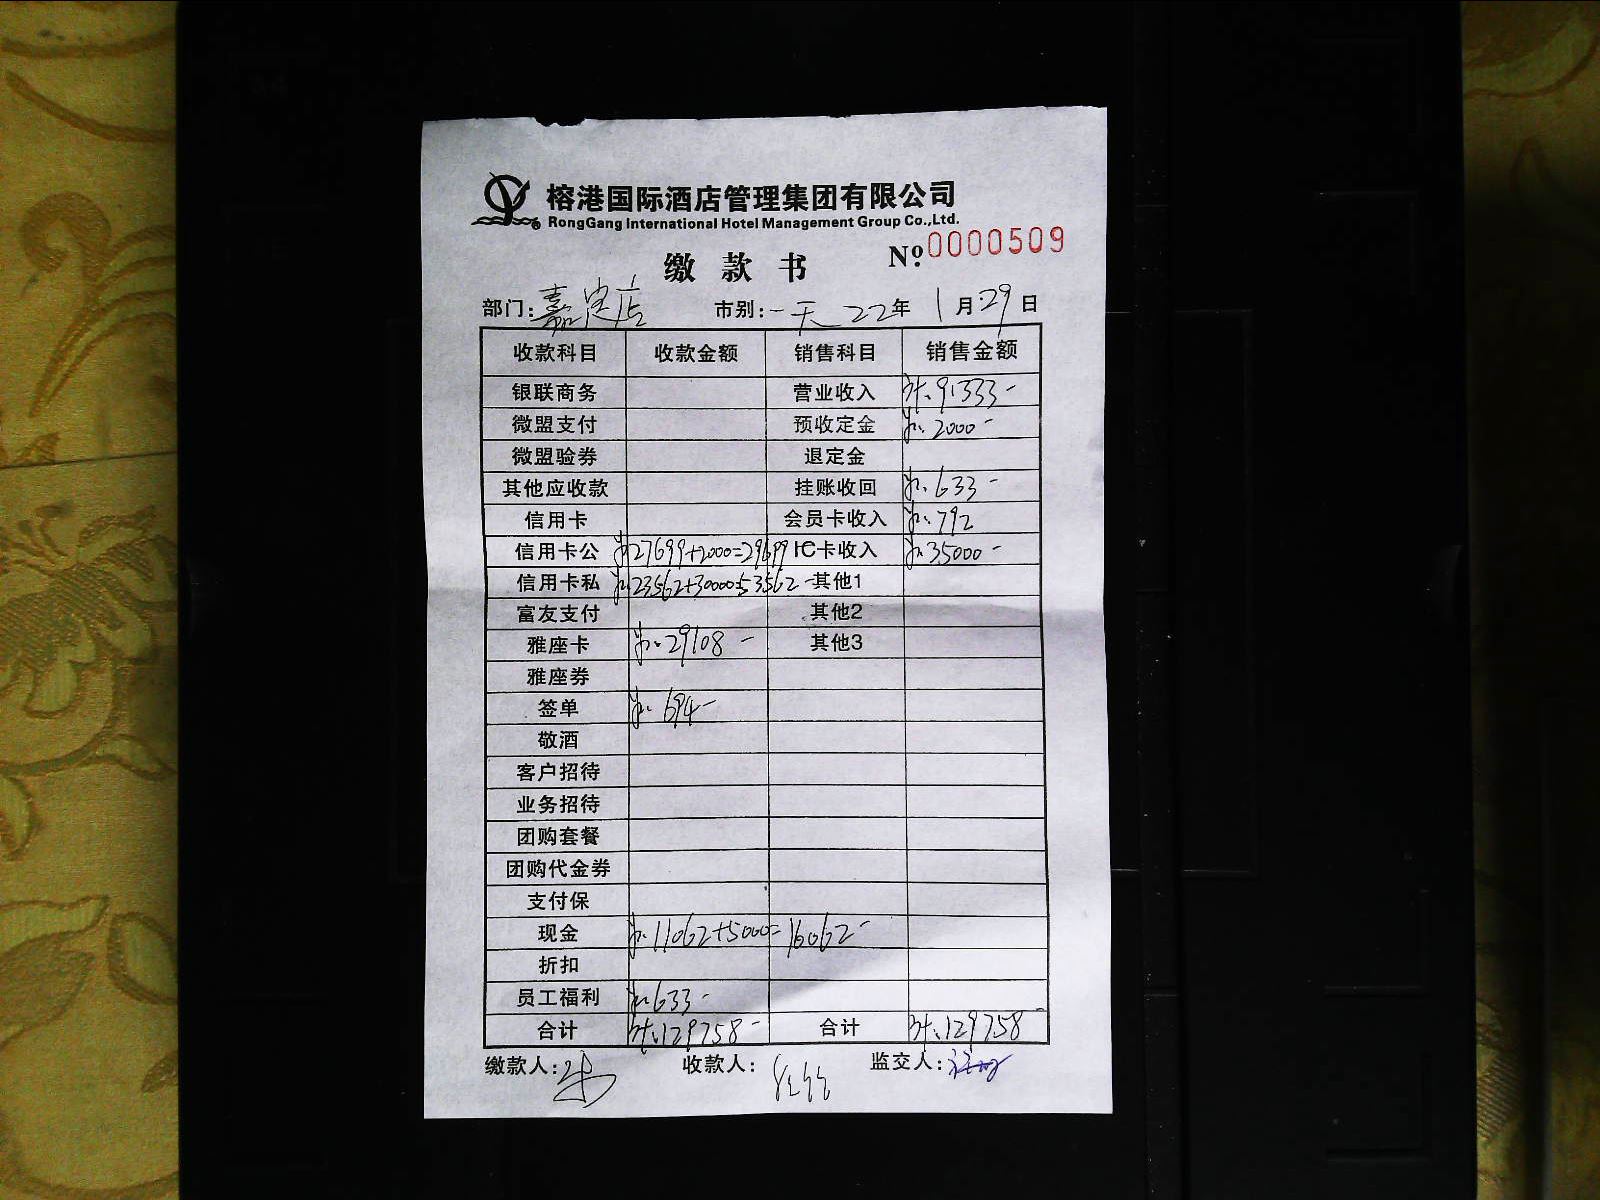 榕港国际酒店管理集团有限公司
RongGang International Hotel Management Group Co.,Ltd.
缴 款 书 Nº 0000509
部门:嘉定店 市别:一天 22年 1月29日
收款科目 收款金额 销售科目 销售金额
银联商务 营业收入 计、91333-
微盟支付 预收定金 2000-
微盟验券 退定金
其他应收款 挂账收回 633-
信用卡 会员卡收入 792
信用卡公 27699+2000=29699 IC卡收入 35000-
信用卡私 23562+30000=53562- 其他1
富友支付 其他2
雅座卡 29108- 其他3
雅座券
签单 694-
敬酒
客户招待
业务招待
团购套餐
团购代金券
支付保
现金 11062+5000=16062-
折扣
员工福利 633-
合计 计、129758- 合计 计、129758-
缴款人: 收款人: 监交人: